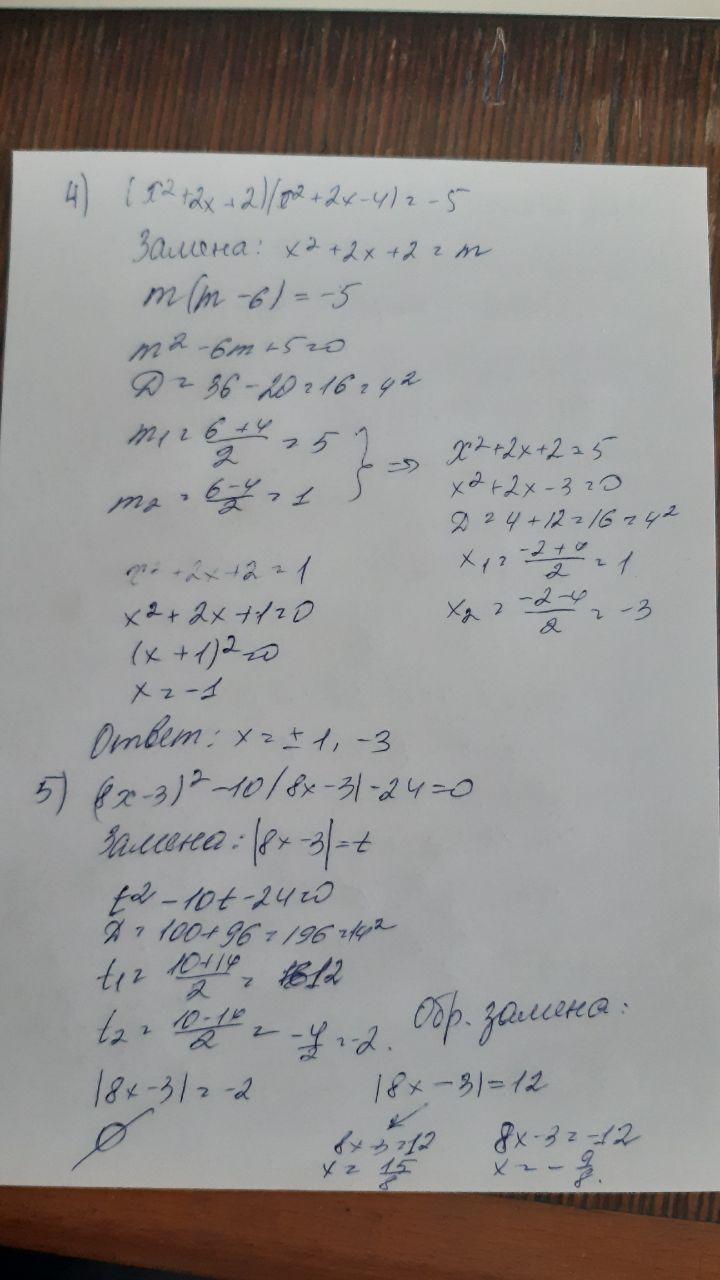 4) (x²+2x+2)(x²+2x-4)=-5
Замена: x²+2x+2=m
m(m-6)=-5
m²-6m+5=0
D=36-20=16=4²
m₁=(6+4)/2=5
m₂=(6-4)/2=1
} ⇒
x²+2x+2=5
x²+2x-3=0
D=4+12=16=4²
x₁=(-2+4)/2=1
x₂=(-2-4)/2=-3
x²+2x+2=1
x²+2x+1=0
(x+1)²=0
x=-1
Ответ: x=±1, -3
5) (8x-3)²-10|8x-3|-24=0
Замена: |8x-3|=t
t²-10t-24=0
D=100+96=196=14²
t₁=(10+14)/2=12
t₂=(10-14)/2=-4/2=-2.
Обр. замена:
|8x-3|=-2
∅
|8x-3|=12
8x-3=12
x=15/8
8x-3=-12
x=-9/8.